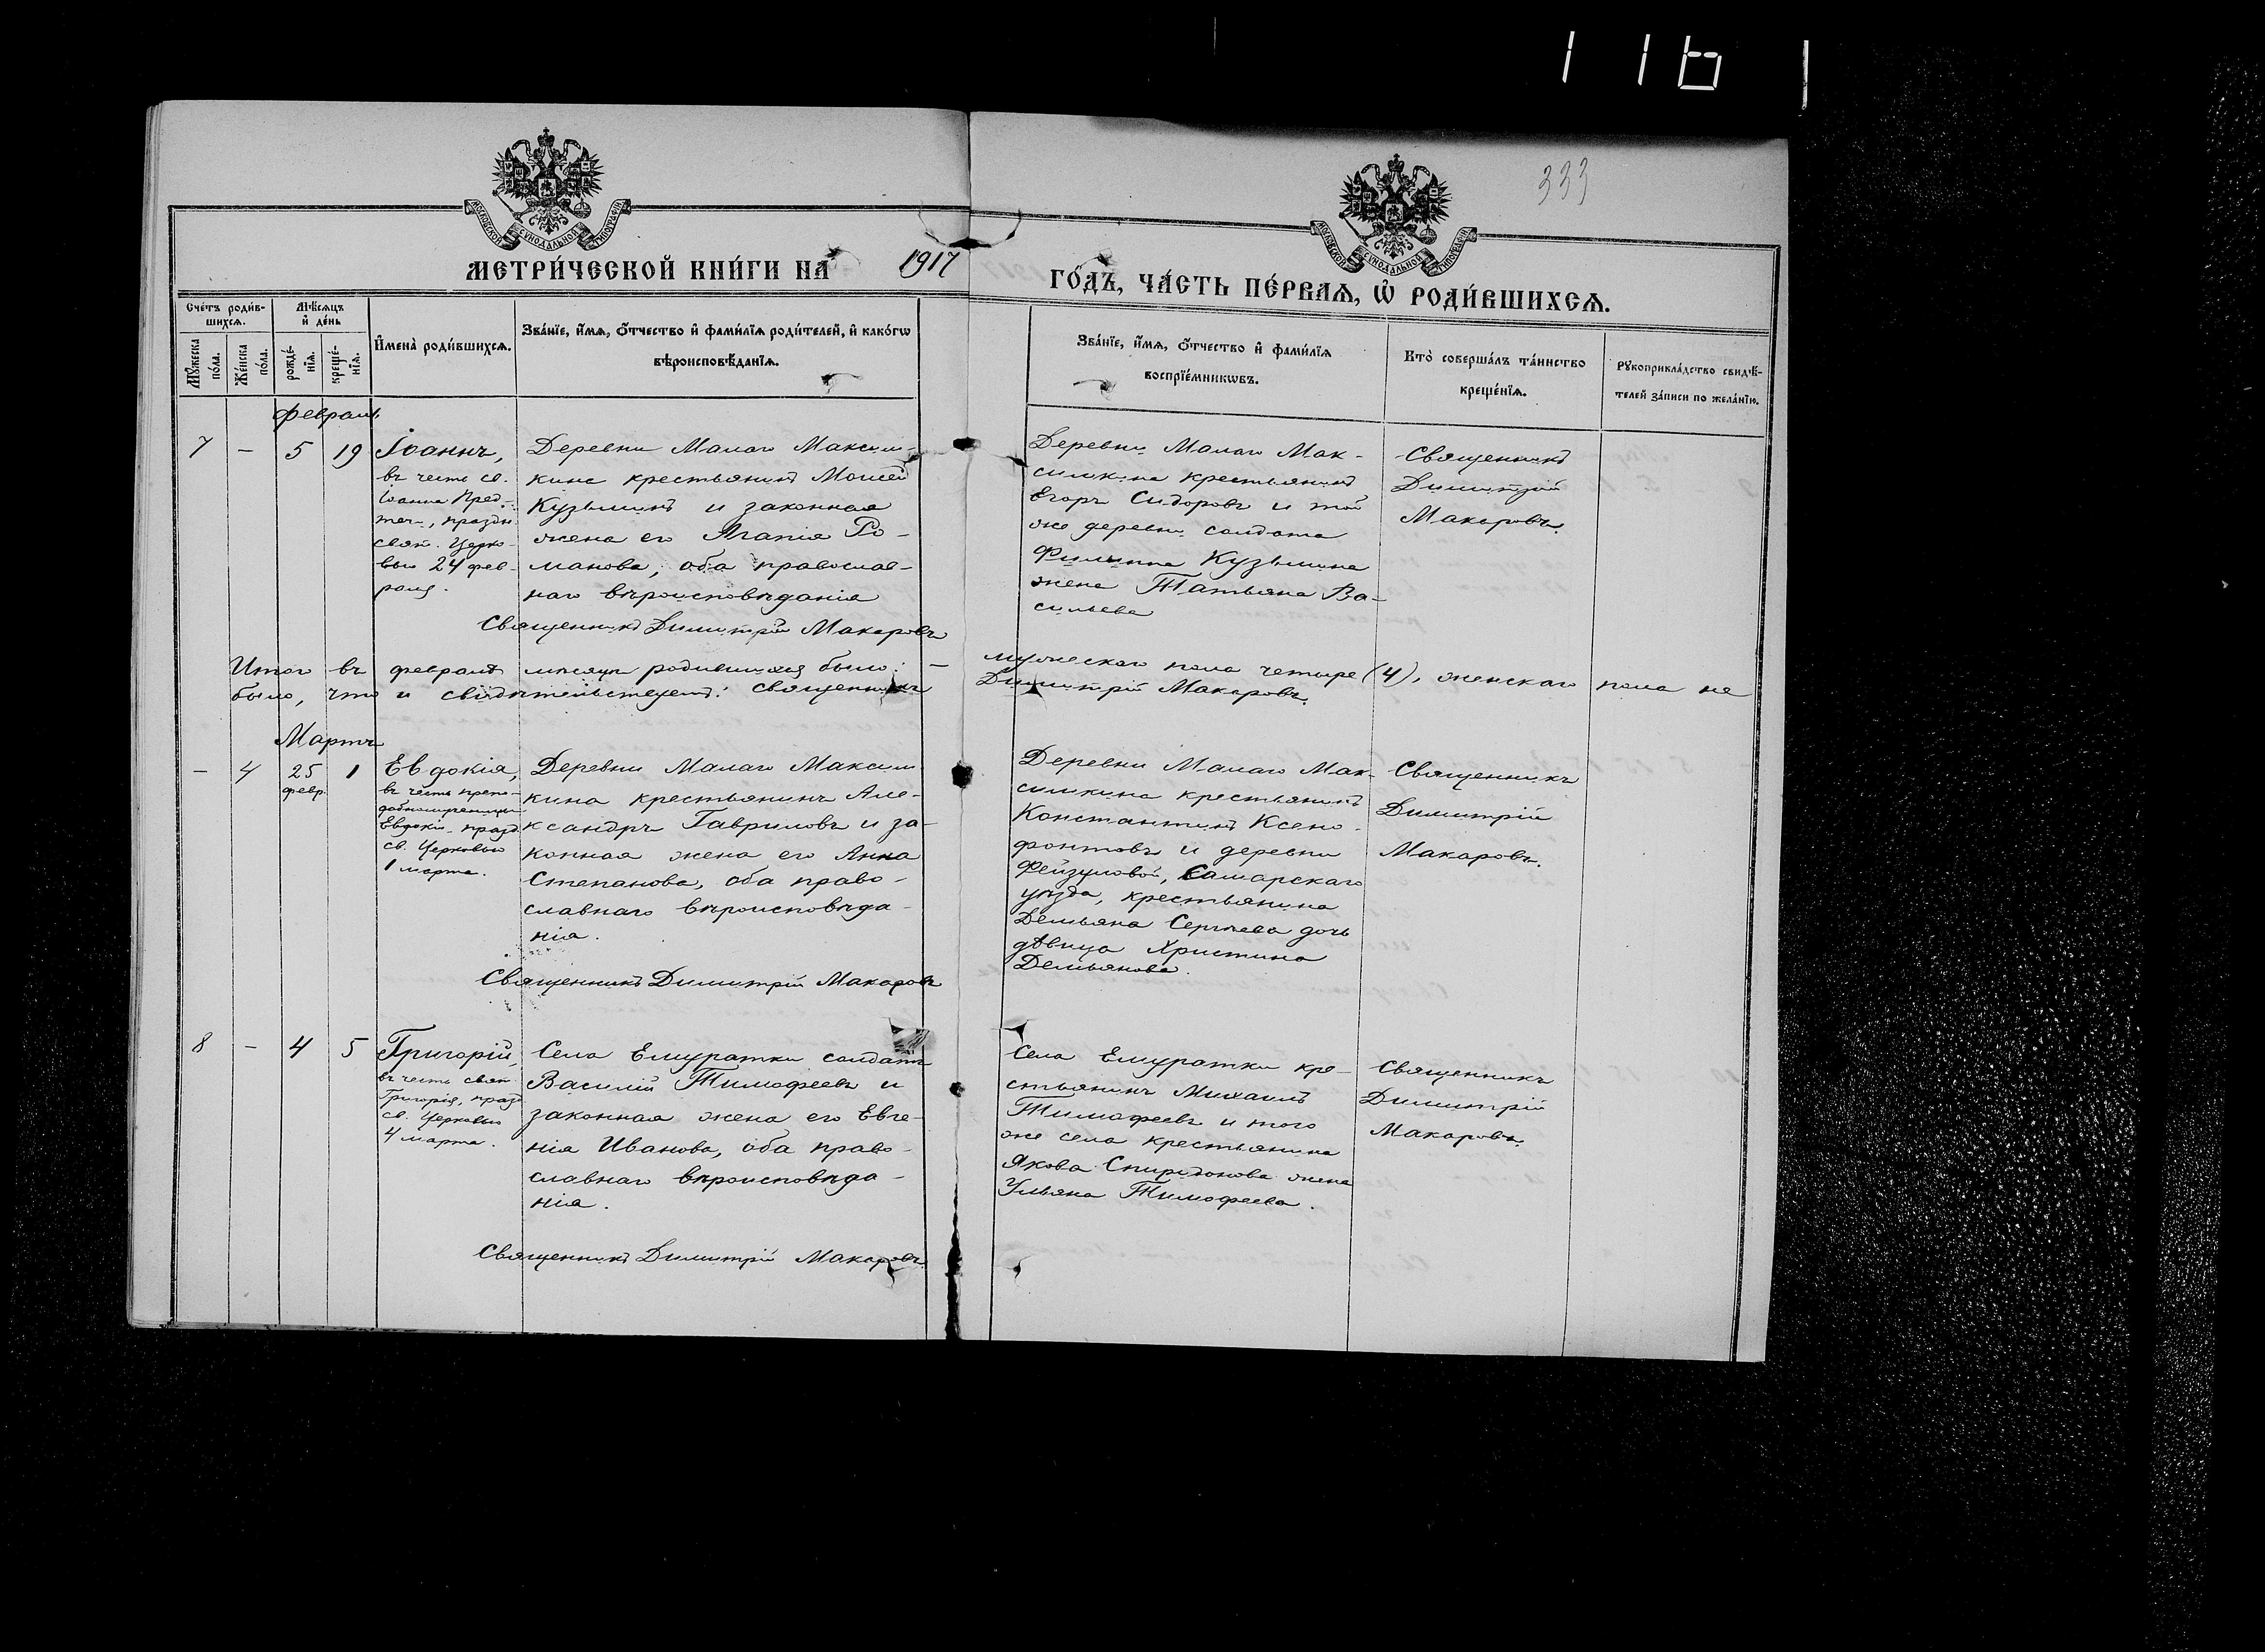 116
333
МОСКОВСКОЙ СѴНОДАЛЬНОЙ ТИПОГРАФІИ
МОСКОВСКОЙ СѴНОДАЛЬНОЙ ТИПОГРАФІИ
МЕТРИ́ЧЕСКОЙ КНИ́ГИ НА 1917
ГО́ДЪ, ЧА́СТЬ ПЕ́РВАѦ, Ѡ҆ РОДИ́ВШИХСѦ.
Сче́тъ роди́в-
шихсѧ.
Мѣ́сѧцъ
и҆ де́нь
Мꙋ́жеска
по́ла.
Же́нска
по́ла.
рожде́-
нїѧ.
креще́-
нїѧ.
И҆мена̀ роди́вшихсѧ.
Зва́нїе, и҆́мѧ, ѻ҆́тчество и҆ фами́лїѧ роди́телей, и҆ како́гѡ
вѣроисповѣ́данїѧ.
Зва́нїе, и҆́мѧ, ѻ҆́тчество и҆ фами́лїѧ
воспрїе́мникѡвъ.
Кто̀ соверша́лъ та́инство
креще́нїѧ.
Рꙋкоприкла́дство свидѣ́-
телей за́писи по жела́нїю.
Февраль
7 - 5 19
Іоаннъ,
въ честь св.
Іоанна Пред-
течи, праздн.
свят. Церко-
вью 24 фев-
раля.
Деревни Малаго Максим-
кина крестьянинъ Моисей
Кузьминъ и законная
жена его Агапія Ро-
манова, оба православ-
наго вѣроисповѣданія
Священникъ Димитрій Макаровъ
Деревни Малаго Мак-
симкина крестьянинъ
Егоръ Сидоровъ и той
же деревни солдата
Филиппа Кузьмина
жена Татьяна Ва-
сильева
Священникъ
Димитрій
Макаровъ.
Итого въ февралѣ мѣсяцѣ родившихся было: — мужескаго пола четыре (4), женскаго пола не
было, что и свидѣтельствуетъ: священникъ Димитрій Макаровъ.
Мартъ
- 4 25 1
февр.
Евдокія,
въ честь препо-
добномученицы
Евдокіи, празд.
св. Церковью
1 марта.
Деревни Малаго Максим
кина крестьянинъ Але-
ксандръ Гавриловъ и за-
конная жена его Анна
Степанова, оба право-
славнаго вѣроисповѣда-
нія.
Священникъ Димитрій Макаровъ
Деревни Малаго Мак-
симкина крестьянинъ
Константинъ Ксено-
фонтовъ и деревни
Фейзуловой, Самарскаго
уѣзда, крестьянина
Демьяна Сергѣева дочь
дѣвица Христина
Демьянова.
Священникъ
Димитрій
Макаровъ.
8 - 4 5
Григорій,
въ честь свят.
Григорія, празд.
св. Церковью
4 марта.
Села Емуратки солдатъ
Василій Тимофеевъ и
законная жена его Евге-
нія Иванова, оба право-
славнаго вѣроисповѣда-
нія.
Священникъ Димитрій Макаровъ.
Села Емуратки кре-
стьянинъ Михаилъ
Тимофеевъ и того
же села крестьянина
Якова Спиридонова жена
Ульяна Тимофеева.
Священникъ
Димитрій
Макаровъ.